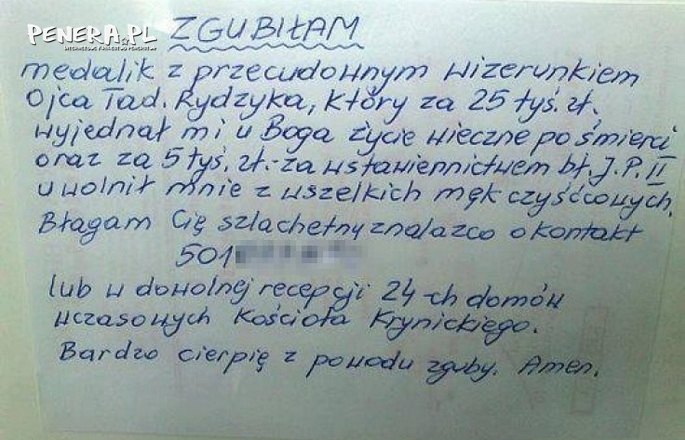 PENERA.PL
ZGUBIŁAM
medalik z przecudownym wizerunkiem
Ojca Tad. Rydzyka, który za 25 tyś. zł.
wyjednał mi u Boga życie wieczne po śmierci
oraz za 5 tyś. zł.-za wstawiennictwem bł. J.P. II
uwolnił mnie z wszelkich męk czyśćcowych.
Błagam Cię szlachetny znalazco o kontakt
501
lub w dowolnej recepcji 24-ch domów
wczasowych Kościoła Krynickiego.
Bardzo cierpię z powodu zguby. Amen.